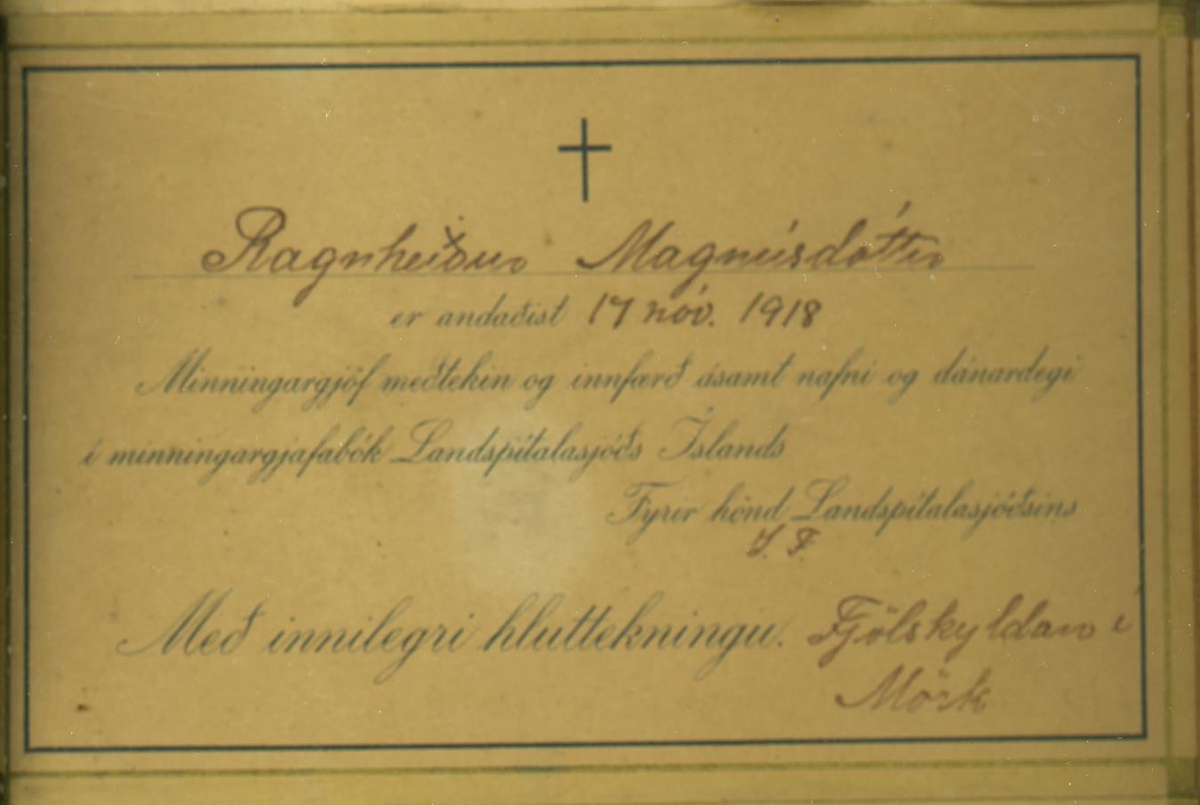 Ragnheiður Magnúsdóttir
er andaðist 17 nóv. 1918
Minningargjöf meðtekin og innfærð ásamt nafni og dánardegi
í minningargjafabók Landspítalasjóðs Íslands
Fyrir hönd Landspítalasjóðsins
Með innilegri hluttekningu. Fjölskyldan í
Mörk